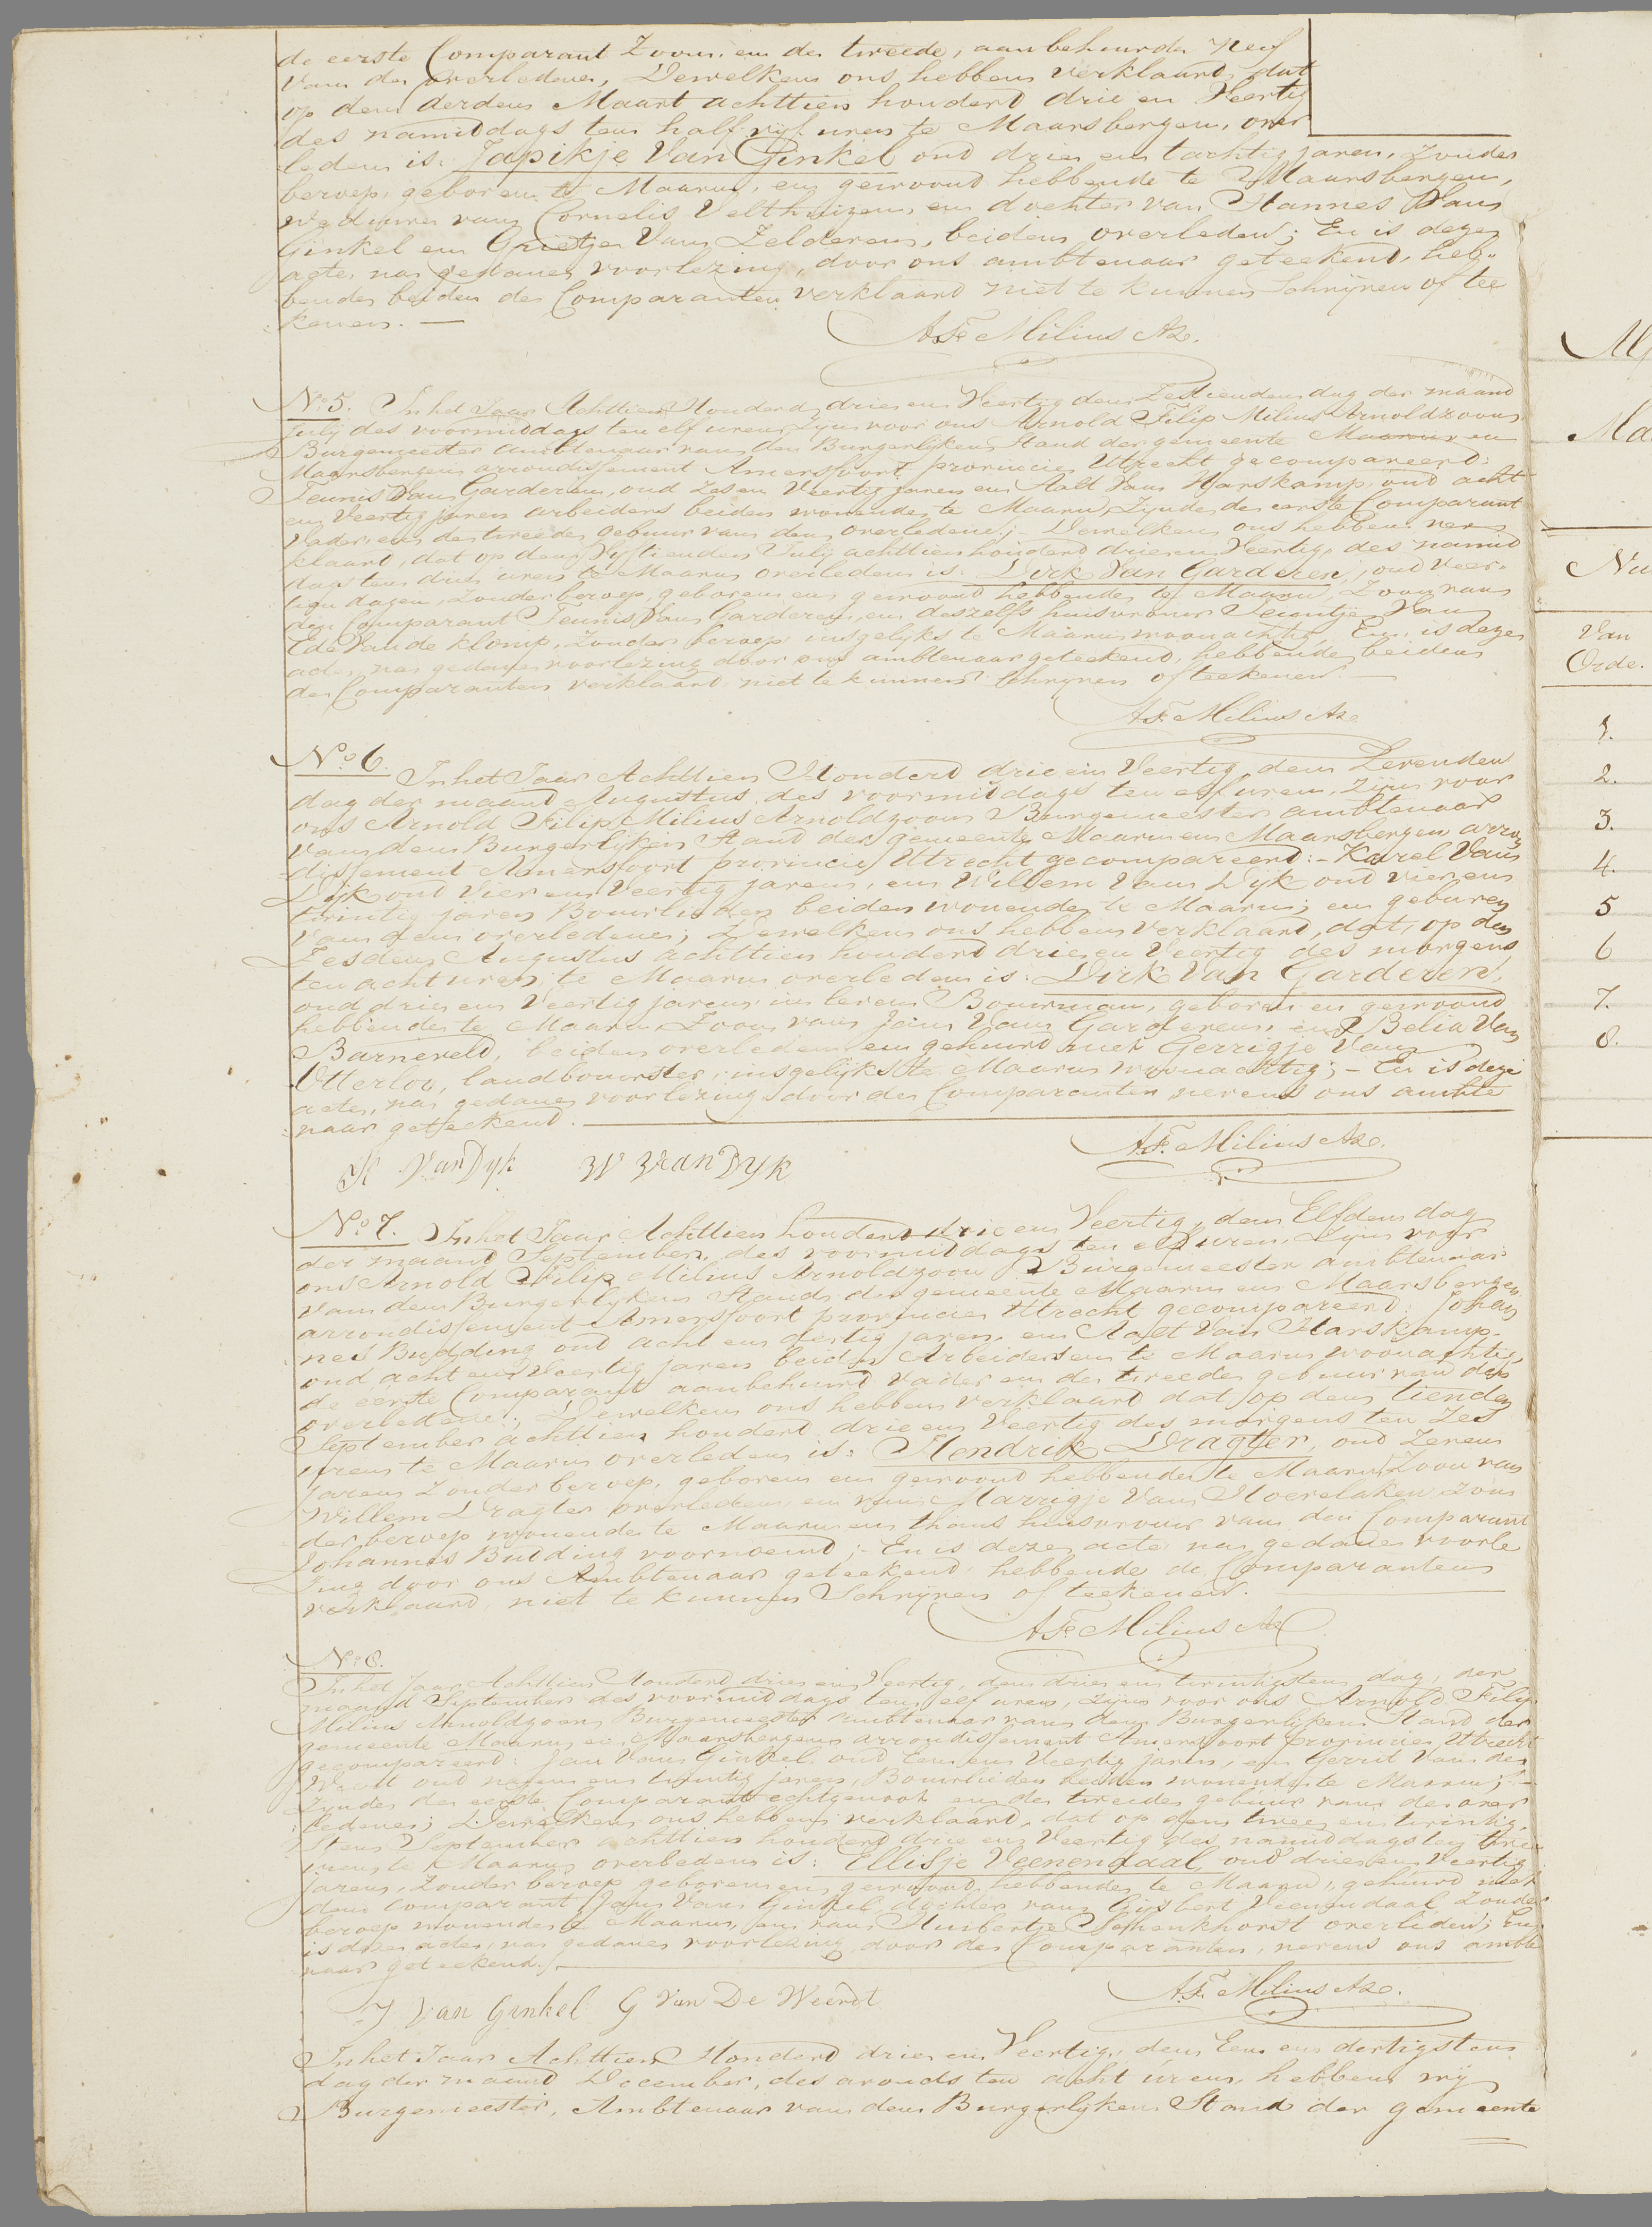 de eerste Comparant Zoon en de tweede, aanbehuwde Neef
van de overledene, Dewelken ons hebben verklaard, dat
op den derden Maart achttien honderd drie en Veertig
des namiddags ten half vijf uren te Maarsbergen, over
leden is: Japikje Van Ginkel oud drie en tachtig jaren, zonder
beroep, geboren te Maarn, en gewoond hebbende te Maarsbergen,
weduwe van Cornelis Velthuizen, en dochter van Hannes Van
Ginkel en Grietje Van Zelderen, beiden overleden; En is deze
acte, na gedane voorlezing, door ons ambtenaar geteekend, heb„
bende beiden de Comparanten verklaard niet te kunnen Schrijven of tee
kenen. —
A.F. Milius Az.
No 5. In het Jaar Achttien Honderd drie en Veertig den Zestienden dag der maand
Julij des voormiddags ten elf uren zijn voor ons Arnold Filip Milius Arnoldzoon
Burgemeester ambtenaar van den Burgerlijken Stand der gemeente Maarn en
Maarsbergen arrondissement Amersfoort provincie Utrecht gecompareerd:
Teunis Van Garderen, oud zes en Veertig jaren en Aalt Van Harskamp, oud acht
en Veertig jaren arbeiders beiden wonende te Maarn, Zynde de eerste Comparant
Vader en de tweede gebuur van den overledene; Dewelken ons hebben ver
klaard, dat op den Vyftienden Julij achttien honderd drie en Veertig, des namid
dags ten drie uren te Maarn overleden is: Dirk Van Garderen, oud Veer„
tien dagen, zonder beroep, geboren en gewoond hebbende te Maarn, Zoon van
den Comparant Teunis Van Garderen, en deszelfs huisvrouw Teuntje Van
Ede Van de Klomp, zonder beroep insgelyks te Maarn woonachtig, En is deze
acte, na gedane voorlezing door ons ambtenaar geteekend, hebbende beiden
de Comparanten verklaard niet te kunnen Schrijven of teekenen. —
A.F. Milius Az
No 6. In het Jaar Achttien Honderd drie en Veertig, den Zevenden
dag der maand Augustus, des voormiddags ten elf uren, zijn voor
ons Arnold Filip Milius Arnoldzoon Burgemeester ambtenaar
van den Burgerlijken Stand der gemeente Maarn en Maarsbergen arron
dissement Amersfoort provincie Utrecht gecompareerd: - Karel Van
Dijk oud Vier en Veertig jaren, en Willem Van Dyk oud vier en
twintig jaren Bouwlieden beiden wonende te Maarn; en geburen
van den overledene; Dewelken ons hebben verklaard, dat, op den
Zesden Augustus achttien honderd drie en Veertig des morgens
ten acht uren, te Maarn overleden is: Dirk Van Garderen,
oud drie en Veertig jaren, in leven Bouwman, geboren en gewoond
hebbende te Maarn, Zoon van Jan Van Garderen, en Belia Van
Barneveld, beiden overleden en gehuwd met Gerrigje Van
Otterloo, landbouwster, insgelijks te Maarn woonachtig; - En is deze
acte, na gedane voorlezing door de Comparanten nevens ons ambte
naar geteekend.
K Van Dyk W Van Dyk
A.F. Milius Az.
No 7. In het Jaar Achttien honderd drie en Veertig, den Elfden dag
der maand September, des voormiddags ten elf uren, zijn voor
ons Arnold Filip Milius Arnoldzoon Burgemeester ambtenaar
van den Burgerlyken Stand der gemeente Maarn en Maarsbergen
arrondissement Amersfoort provincie Utrecht gecompareerd: Johan
nes Budding oud acht en dertig jaren, en Aalt Van Harskamp
oud acht en Veertig jaren beiden Arbeiders en te Maarn woonachtig,
de eerste Comparant aanbehuwd vader en de tweede gebuur van den
overledene; Dewelken ons hebben verklaard dat op den tienden
September achttien honderd drie en Veertig des morgens ten zes
uren te Maarn overleden is: Hendrik Dragter, oud zeven
jaren zonder beroep, geboren en gewoond hebbende te Maarn, Zoon van
Willem Dragter overleden, en van Marrigje Van Hoevelaken zon
der beroep wonende te Maarn en thans huisvrouw van den Comparant
Johannes Budding voornoemd; - En is deze acte na gedane voorle
zing door ons Ambtenaar geteekend, hebbende de Comparanten
verklaard, niet te kunnen Schrijven of teekenen.
A.F. Milius Az
No 8.
In het Jaar Achttien Honderd drie en Veertig, den drie en twintigsten dag, der
maand September des voormiddags ten elf uren, zijn voor ons Arnold Filip
Milius Arnoldzoon Burgemeester ambtenaar van den Burgerlijken Stand der
gemeente Maarn en Maarsbergen arrondissement Amersfoort provincie Utrecht
gecompareerd: Jan Van Ginkel oud Een en Veertig jaren, en Gerrit Van de
Weerd oud negen en twintig jaren, Bouwlieden beiden wonende te Maarn; -
Zynde de eerste Comparant echtgenoot en de tweede gebuur van de over
ledene; Dewelken ons hebben verklaard, dat op den twee en twintig„
sten September achttien honderd drie en Veertig des namiddags ten twee
uren te Maarn overleden is: Ellisje Veenendaal, oud drie en Veertig
jaren, zonder beroep geboren en gewoond hebbende te Maarn, gehuwd met
den Comparant Jan Van Ginkel, dochter van Gijsbert Veenendaal, Zonder
beroep wonende te Maarn, en van Huibertje Schenkhorst overleden; En
is deze acte, na gedane voorlezing door de Comparanten, nevens ons ambte
naar geteekend.
J Van Ginkel G Van De Weerdt
A.F. Milius Az.
In het Jaar Achttien Honderd drie en Veertig, den Een en dertigsten
dag der maand December, des avonds ten acht uren, hebben wij
Burgemeester, Ambtenaar van den Burgerlyken Stand der gemeente
Van
Orde.
1.
2.
3.
4.
5
6
7.
8.